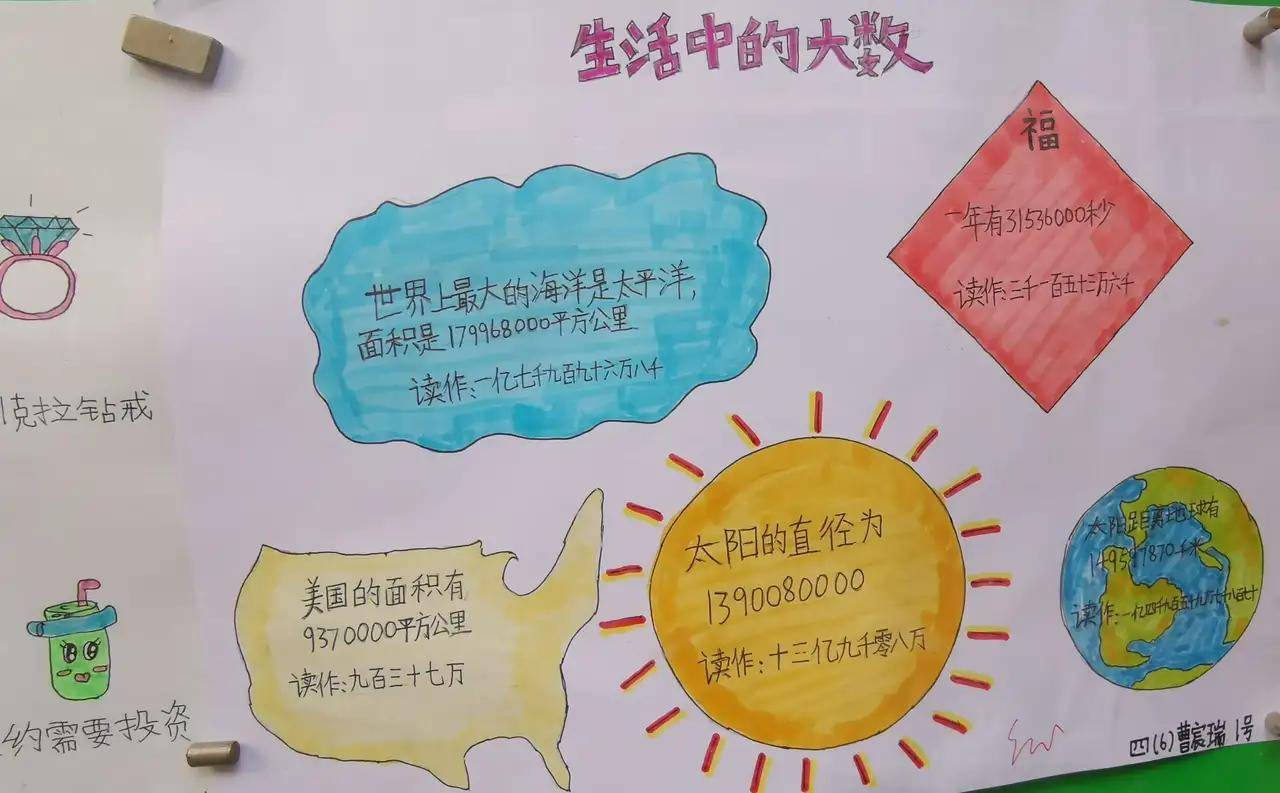 生活中的大数
福
一年有31536000秒
读作:三千一百五十三万六千
世界上最大的海洋是太平洋,
面积是179968000平方公里
读作:一亿七千九百九十六万八千
1克拉钻戒
美国的面积有
9370000平方公里
读作:九百三十七万
太阳的直径为
1390080000
读作:十三亿九千零八万
太阳距离地球有
149597870千米
读作:一亿四千九百五十九万七千八百七十
约需要投资
四(6)曹宸瑞 1号